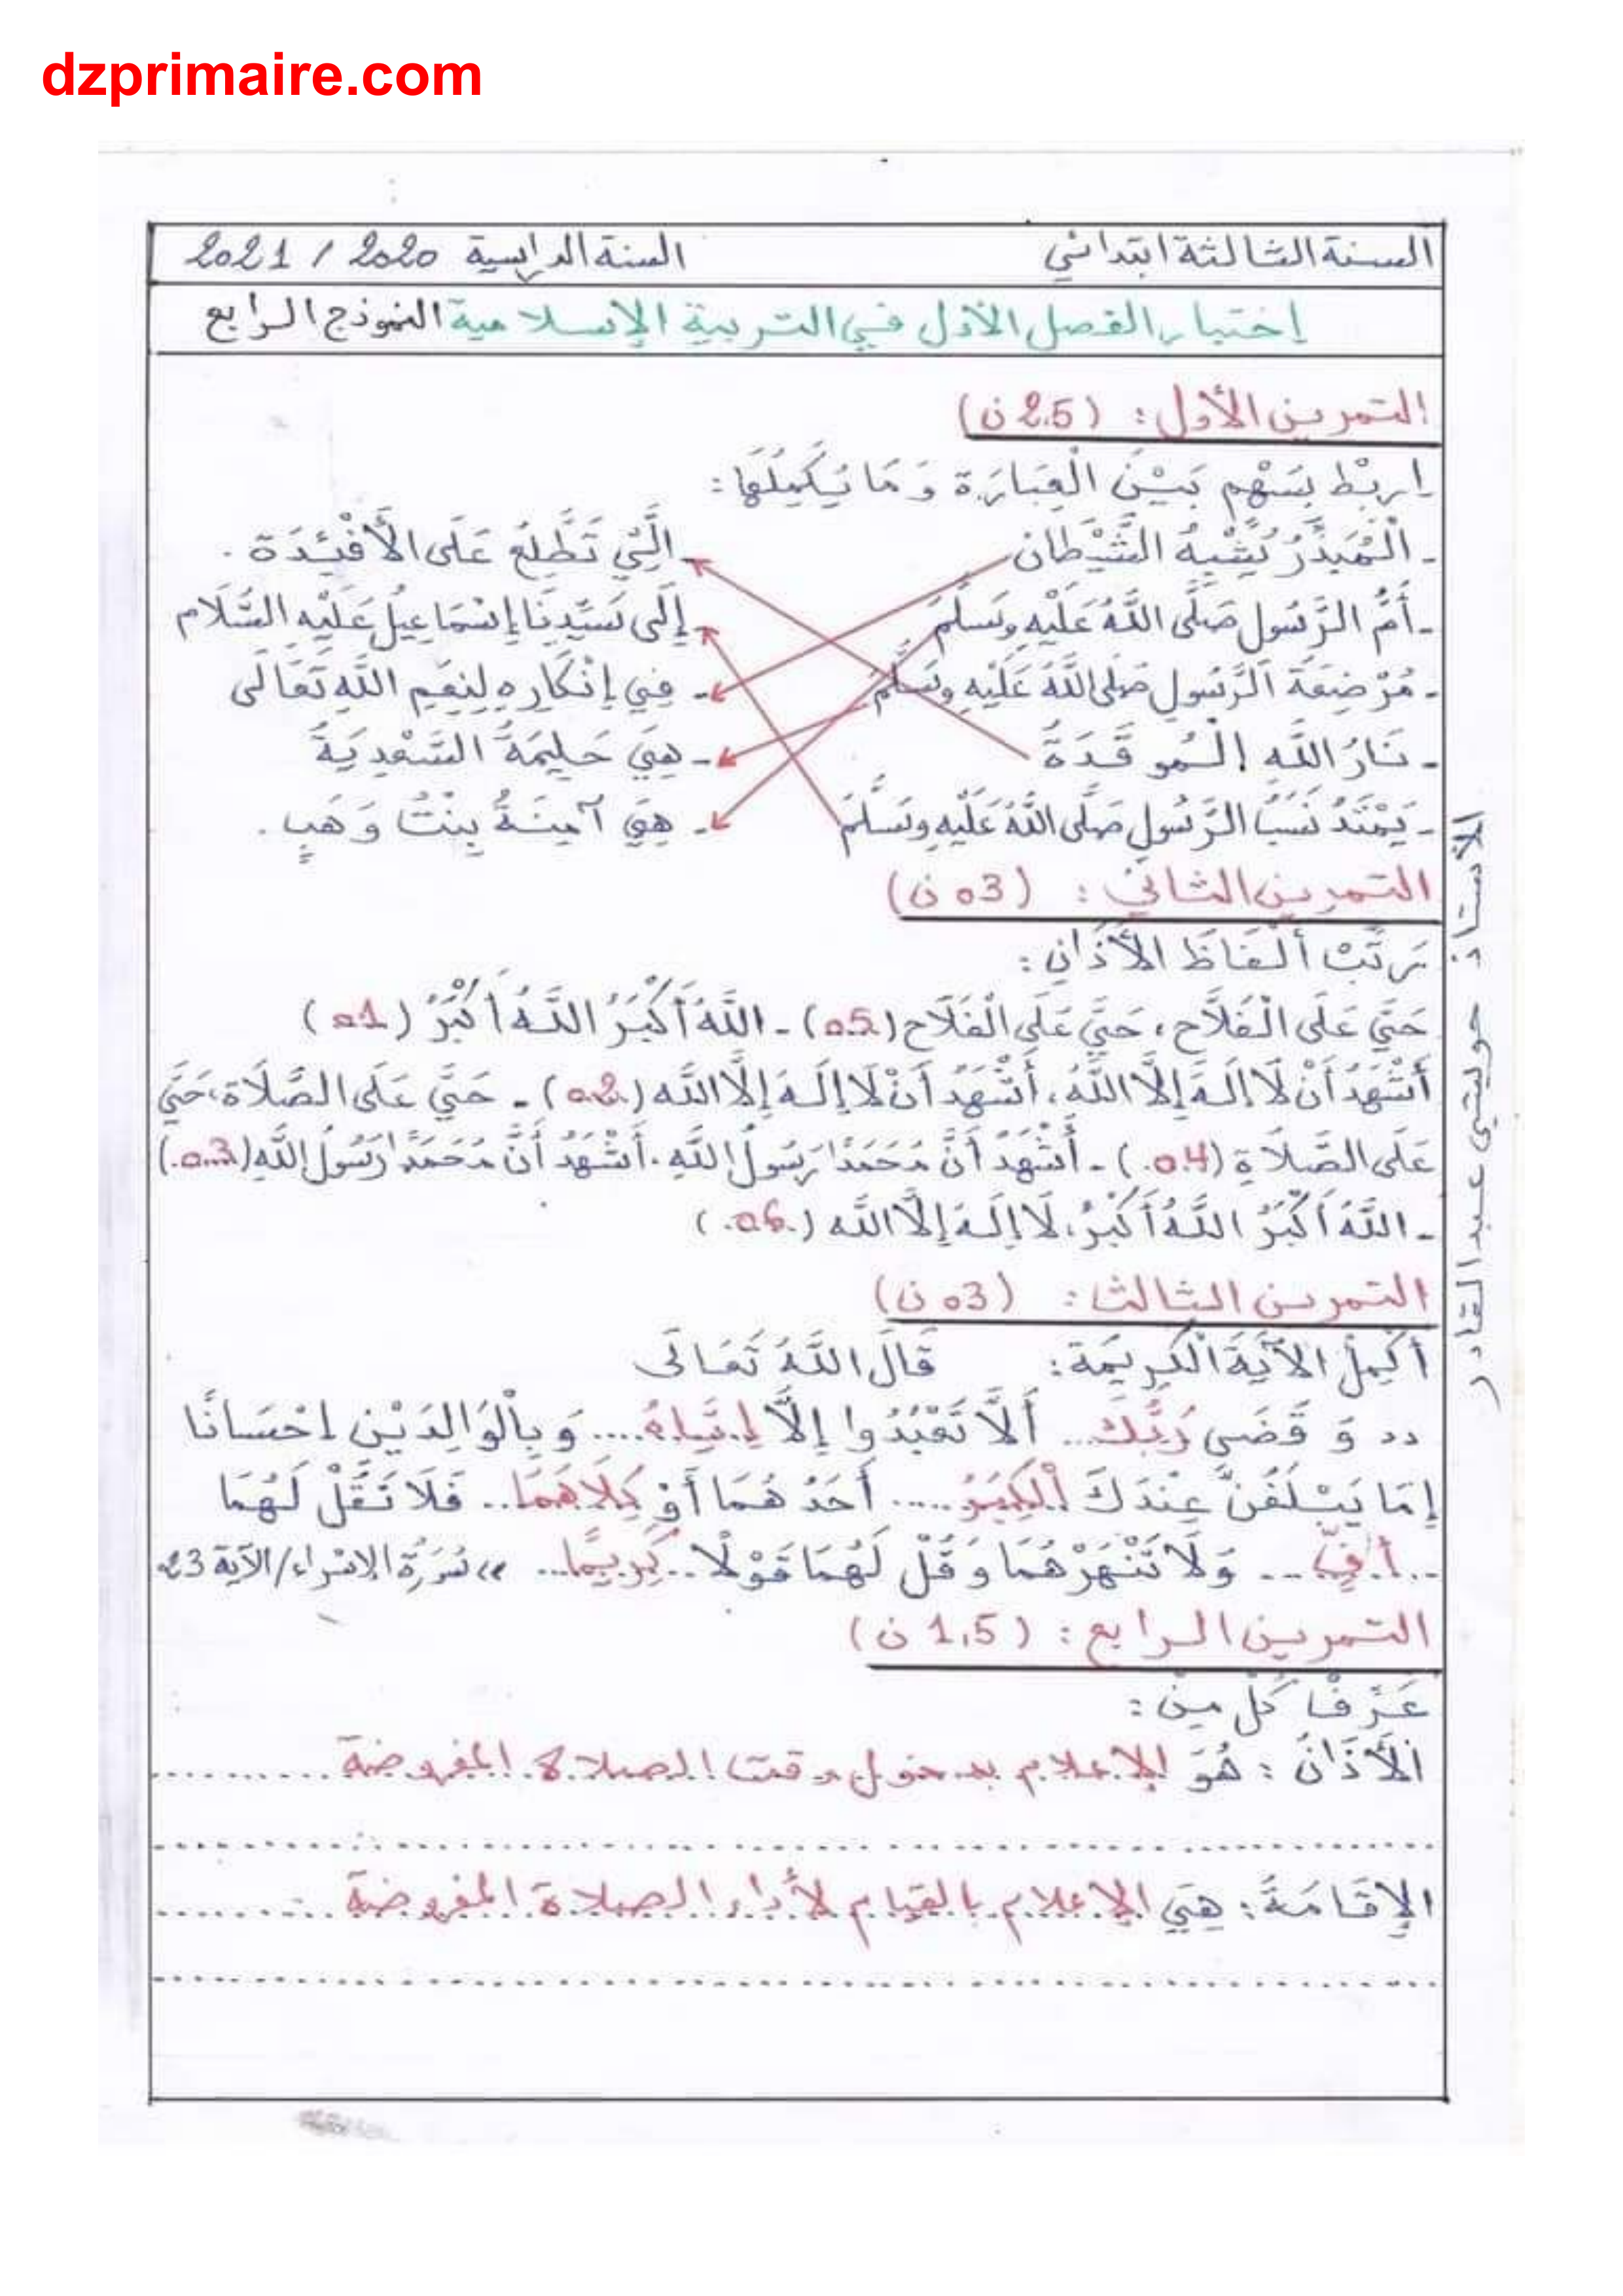 dzprimaire.com
السنة الثالثة ابتدائي السنة الدراسية 2020 / 2021
إختبار الفصل الأول في التربية الإسلامية النموذج الرابع
التمرين الأول : (2.5 ن)
اِربْط بِسَهْمٍ بَيْنَ الْعِبَارَة وَ مَا يُكَمِّلُهَا :
- الْمُبَذِّرُ يُشْبِهُ الشَّيْطان - الَّتِي تَطَّلِعُ عَلَى الأَفْئِدَة .
- أُمُّ الرَّسُول صَلَّى اللَّهُ عَلَيْهِ وسَلَّمَ - إِلَى سَيِّدِنَا إِسْمَاعِيل عَلَيْهِ السَّلَام
- مُرْضِعَة الرَّسُولِ صَلَّى اللَّهُ عَلَيْهِ وسَلَّم - فِي إِنْكَارِهِ لِنِعَمِ اللَّهِ تَعَالَى
- نَارُ اللَّهِ الْمُوقَدَةُ - هِيَ حَلِيمَةُ السَّعْدِيَةُ
- يَمْتَدُ نَسَبُ الرَّسُولِ صَلَّى اللَّهُ عَلَيْهِ وسَلَّمَ - هِيَ آمِنَةُ بِنْتُ وَهَبٍ .
التمرين الثاني : (03 ن)
رَتِّبْ ألْفَاظَ الأَذَانِ :
حَيَّ عَلَى الْفَلَاح ، حَيَّ عَلَى الْفَلَاح (05) - اللَّهُ أَكْبَرُ اللَّهُ أَكْبَرُ (01)
أَشْهَدُ أَنْ لَا إِلَهَ إِلَّا اللَّهُ ، أَشْهَدُ أَنْ لَا إِلَهَ إِلَّا اللَّه (02.) - حَيَّ عَلَى الصَّلَاة ، حَيَّ
عَلَى الصَّلَاةِ (04.) - أَشْهَدُ أَنَّ مُحَمَدًا رَسُولُ اللَّهِ . أَشْهَدُ أَنَّ مُحَمَدًا رَسُولُ اللَّهِ (03.)
- اللَّهُ أَكْبَرُ اللَّهُ أَكْبَرُ ، لَا إِلَهَ إِلَّا اللَّه (.06.)
التمرين الثالث : (03 ن)
أكْمِلْ الآيَةَ الْكَرِيمَة : قَالَ اللَّهُ تَعَالَى
" وَ قَضَى رَبُّكَ... أَلَّا تَعْبُدُوا إِلَّا إِيَّاهُ.... وَ بِالْوَالِدَيْنِ اِحْسَانًا
إِمَا يَبْلُغَنَّ عِنْدَكَ الْكِبَرَ..... أَحَدُهُمَا أَوْ كِلَاهُمَا.. فَلَا تَقُلْ لَهُمَا
...أُفٍّ... وَلَا تَنْهَرْهُمَا وَقُلْ لَهُمَا قَوْلًا ..كَرِيمًا... " سُورَةُ الإسْراء/الآية 23
التمرين الرابع : (1,5 ن)
عَرِّفْ كُلّ مِنْ :
الأَذَانُ : هُوَ الإعلام بدخول وقت الصلاة المفروضة ..........
الإِقَامَةُ : هِيَ الإعلام بالقيام لأداء الصلاة المفروضة ..........
الأستاذ حوليتي عبد القادر